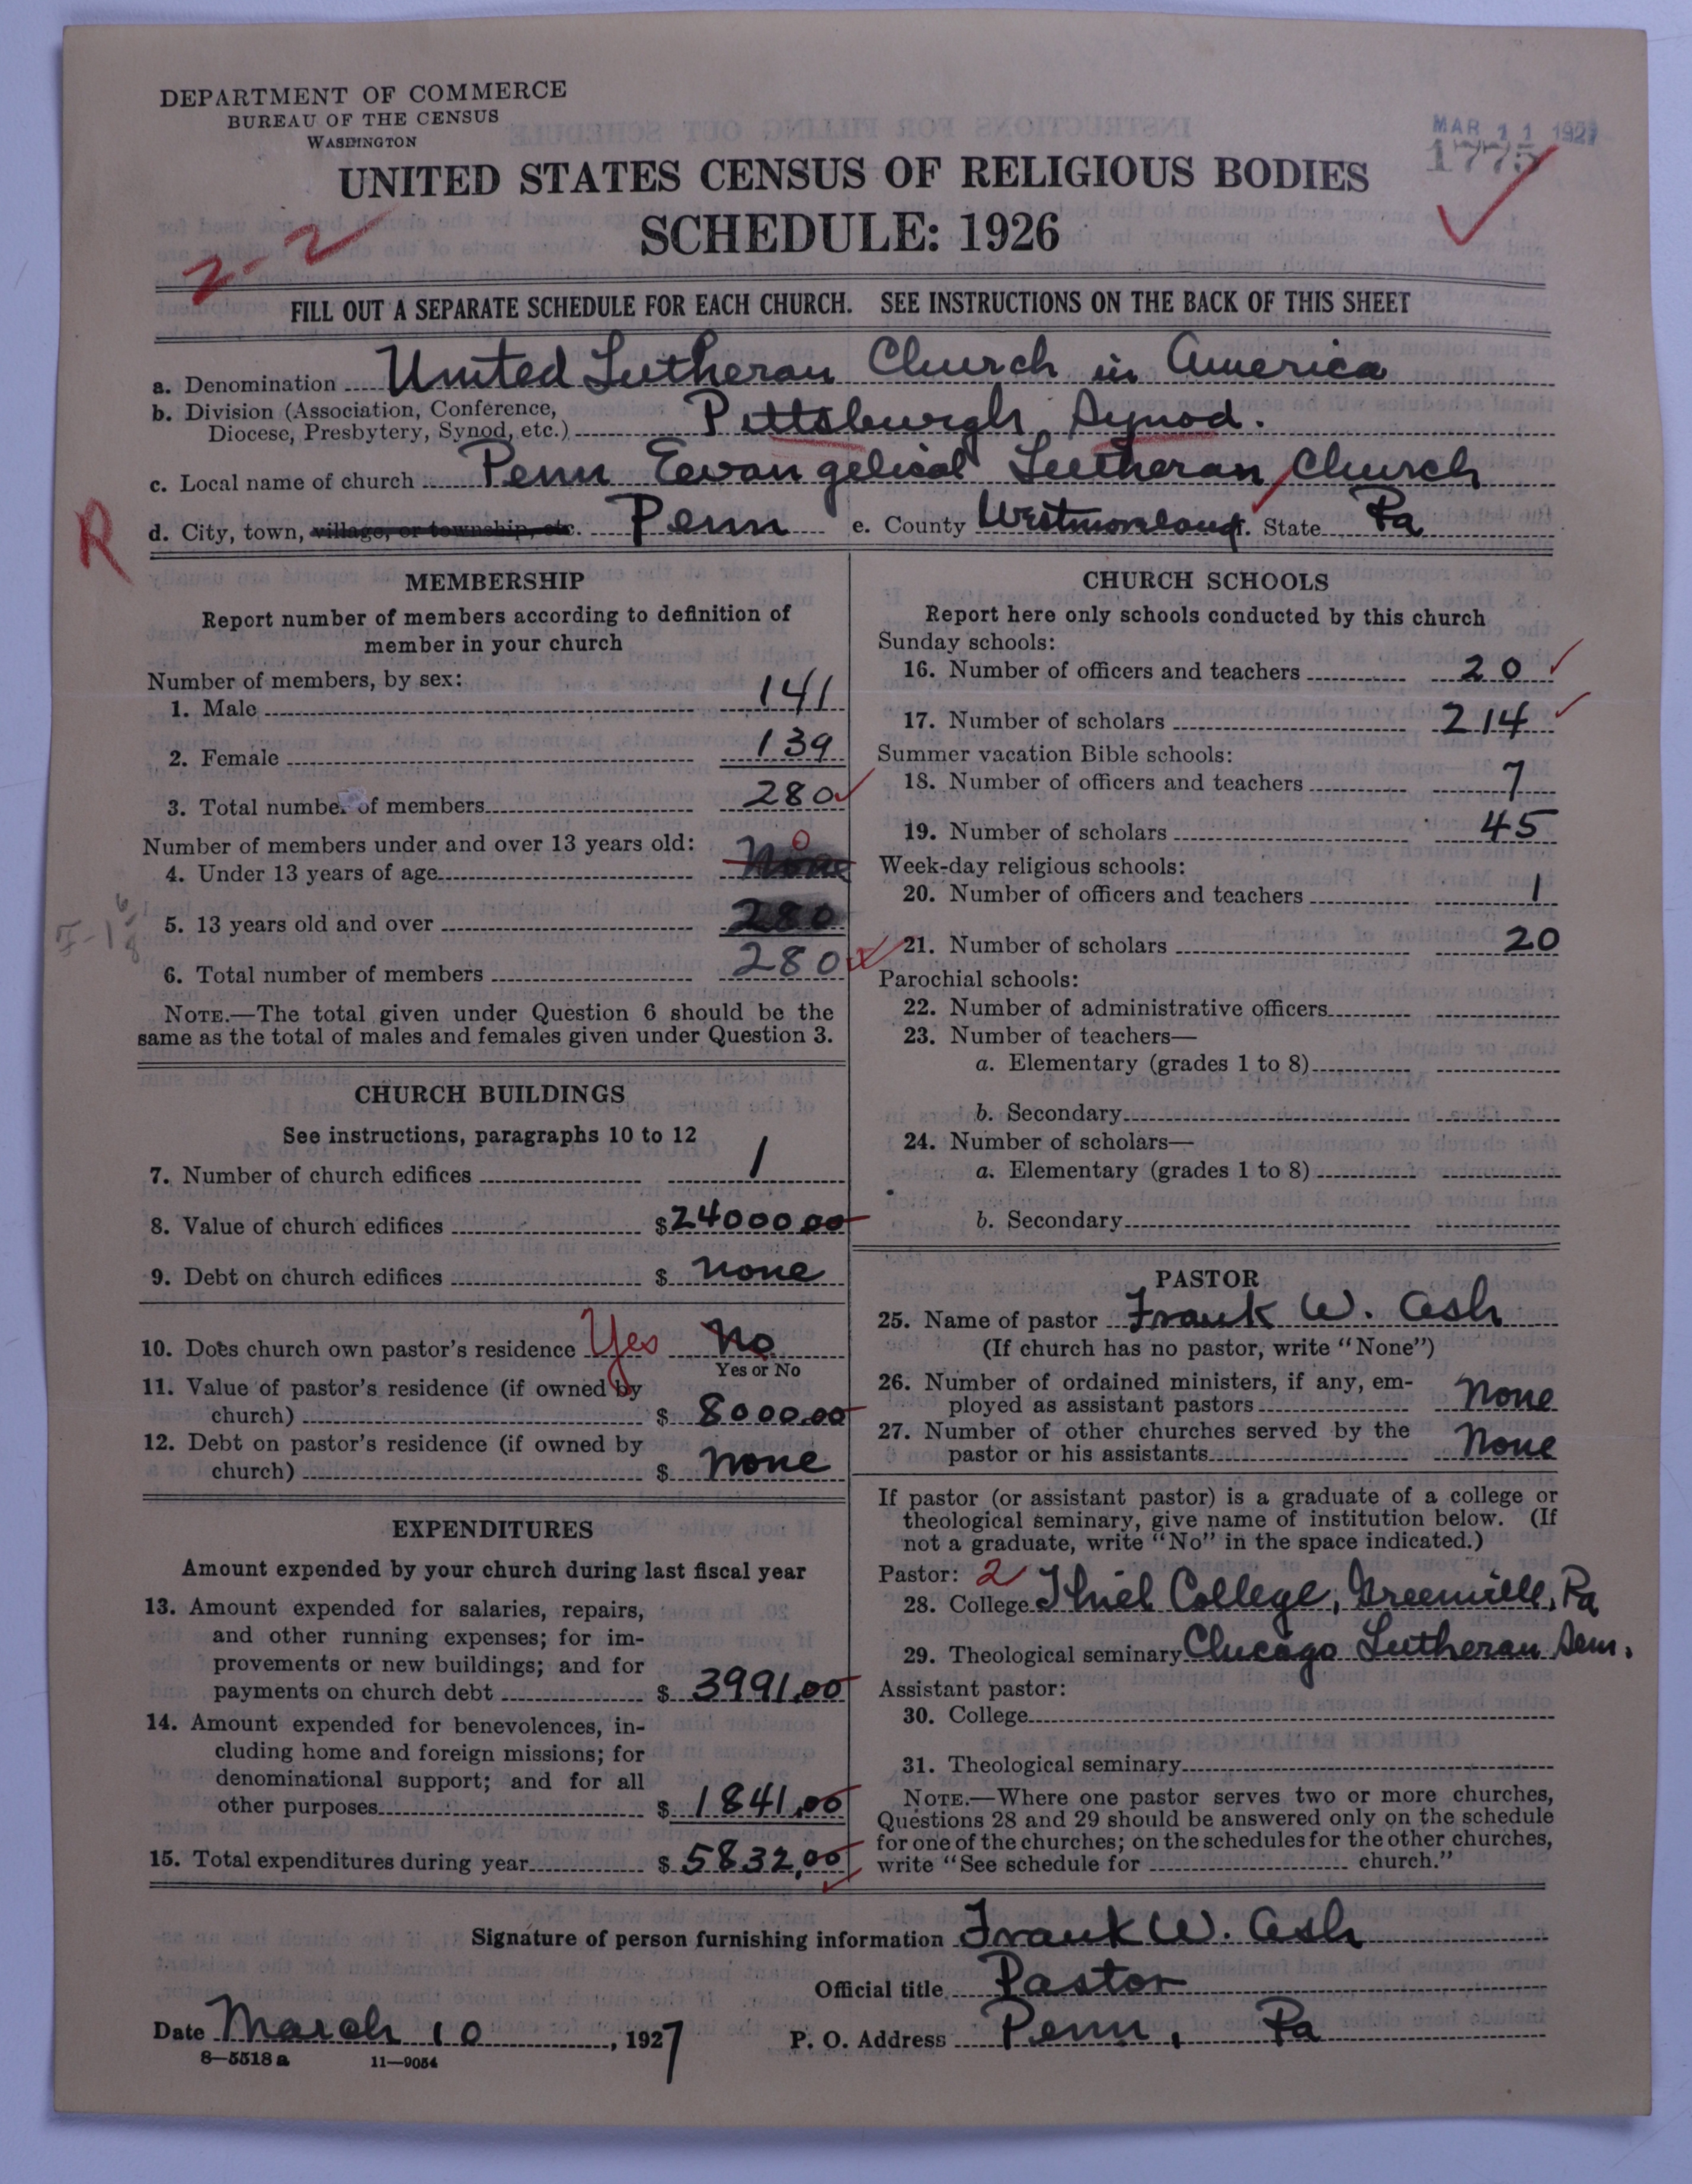 DEPARTMENT OF COMMERCE
BUREAU OF THE CENSUS
WASHINGTON
MAR 11 1927
1775
UNITED STATES CENSUS OF RELIGIOUS BODIES
SCHEDULE: 1926
2-2
FILL OUT A SEPARATE SCHEDULE FOR EACH CHURCH. SEE INSTRUCTIONS ON THE BACK OF THIS SHEET
a. Denomination United Lutheran Church in America
b. Division (Association, Conference,
Diocese, Presbytery, Synod, etc.) Pittsburgh Synod.
c. Local name of church Penn Eevangelical Lutheran Church
R
d. City, town, village, or township, etc. Penn e. County Westmoreland f. State Pa
MEMBERSHIP
Report number of members according to definition of
member in your church
Number of members, by sex:
1. Male 141
2. Female 139
3. Total number of members 280
Number of members under and over 13 years old:
4. Under 13 years of age None 0
5. 13 years old and over 280
6. Total number of members 280
NOTE.—The total given under Question 6 should be the
same as the total of males and females given under Question 3.
CHURCH BUILDINGS
See instructions, paragraphs 10 to 12
7. Number of church edifices 1
8. Value of church edifices $24000.00
9. Debt on church edifices $ none
10. Does church own pastor's residence Yes No
Yes or No
11. Value of pastor's residence (if owned by
church) $ 8000.00
12. Debt on pastor's residence (if owned by
church) $ none
EXPENDITURES
Amount expended by your church during last fiscal year
13. Amount expended for salaries, repairs,
and other running expenses; for im-
provements or new buildings; and for
payments on church debt $ 3991.00
14. Amount expended for benevolences, in-
cluding home and foreign missions; for
denominational support; and for all
other purposes $ 1841.00
15. Total expenditures during year $ 5832.00
CHURCH SCHOOLS
Report here only schools conducted by this church
Sunday schools:
16. Number of officers and teachers 20
17. Number of scholars 214
Summer vacation Bible schools:
18. Number of officers and teachers 7
19. Number of scholars 45
Week-day religious schools:
20. Number of officers and teachers 1
21. Number of scholars 20
Parochial schools:
22. Number of administrative officers
23. Number of teachers—
a. Elementary (grades 1 to 8)
b. Secondary
24. Number of scholars—
a. Elementary (grades 1 to 8)
b. Secondary
PASTOR
25. Name of pastor Frank W. Ash
(If church has no pastor, write "None")
26. Number of ordained ministers, if any, em-
ployed as assistant pastors none
27. Number of other churches served by the
pastor or his assistants none
If pastor (or assistant pastor) is a graduate of a college or
theological seminary, give name of institution below. (If
not a graduate, write "No" in the space indicated.)
Pastor: 2
28. College Thiel College, Greenville, Pa
29. Theological seminary Chicago Lutheran Sem.
Assistant pastor:
30. College
31. Theological seminary
NOTE.—Where one pastor serves two or more churches,
Questions 28 and 29 should be answered only on the schedule
for one of the churches; on the schedules for the other churches,
write "See schedule for church."
Signature of person furnishing information Frank W. Ash
Official title Pastor
Date March 10, 1927 P. O. Address Penn, Pa
8—5518a 11—9054